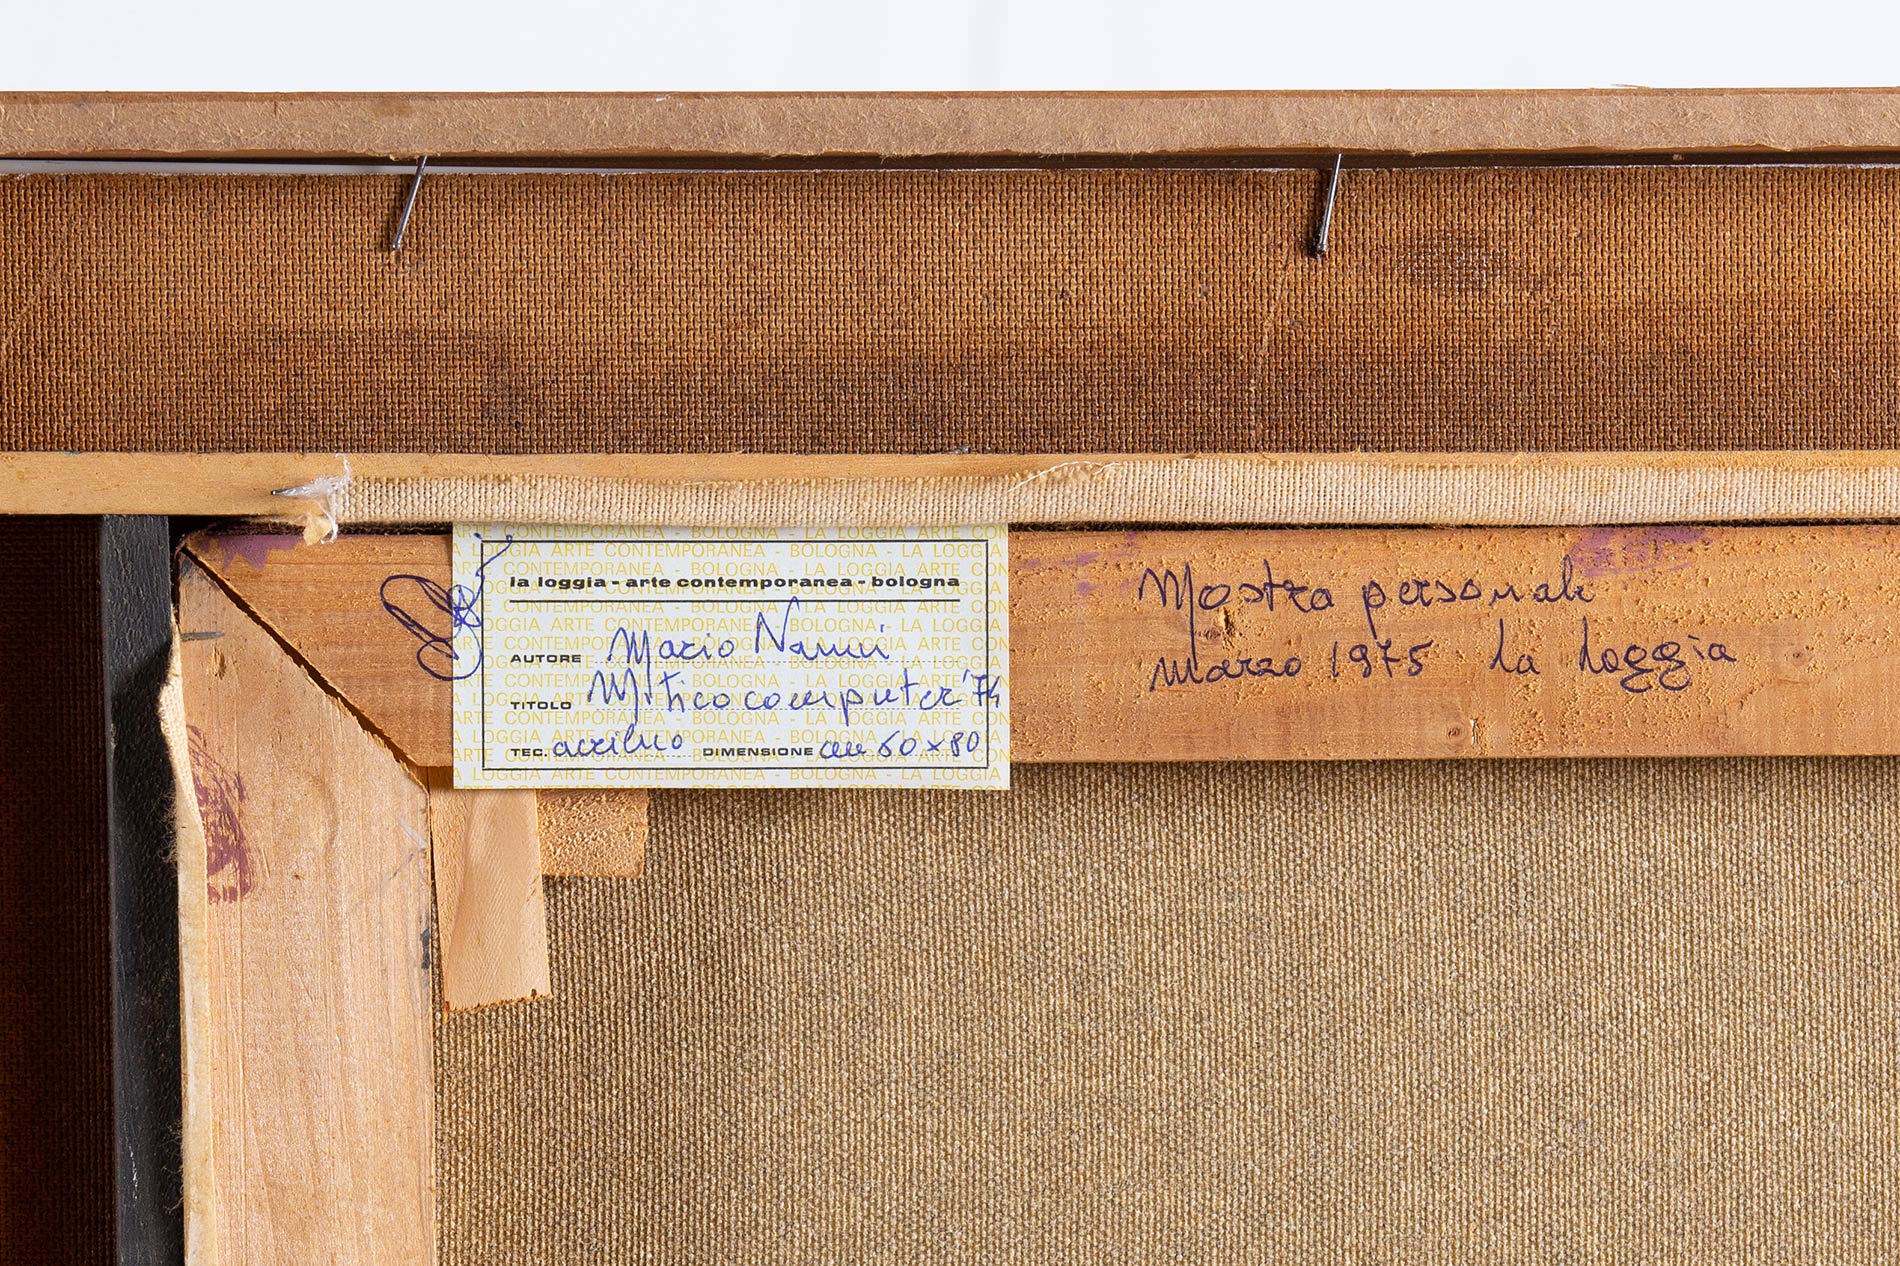 la loggia - arte contemporanea - bologna
AUTORE Mario Nanni
TITOLO Mitico computer '74
TEC. acrilico DIMENSIONE cm 60 x 80
Mostra personale
marzo 1975 la loggia
CONTEMPORANEA - BOLOGNA - LA LOGGIA ARTE
LOGGIA ARTE CONTEMPORANEA - BOLOGNA - LA LOGGIA